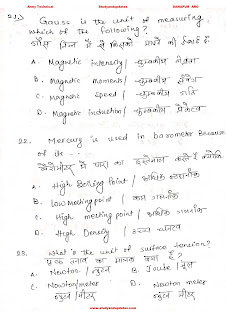 Army Technical
Studyandupdates
DANAPUR ARO
21) Gauss is the unit of measuring
which of the following?
गौस निम्न में से किसको मापने की ईकाई है
A. Magnetic intensity / चुम्बकीय तीव्रता
B. Magnetic moments / चुम्बकीय
C. Magnetic Speed / चुम्बकीय गति
D. Magnetic induction / चुम्बकीय प्रेरण
22. Mercury is used in barometer because
of its --
बैरोमीटर में पारा का इस्तेमाल करते हैं क्योंकि
A. High Boiling point / अधिक क्वथनांक
B. low melting point / कम गलनांक
C. High melting point / अधिक गलनांक
D. High Density / उच्च घनत्व
23. What is the unit of surface tension?
पृष्ठ तनाव का मात्रक क्या है?
A. Newton / न्यूटन B. Joule / जूल
C. Newton/meter D. Newton meter
न्यूटन/मीटर न्यूटन मीटर
www.studyandupdates.com